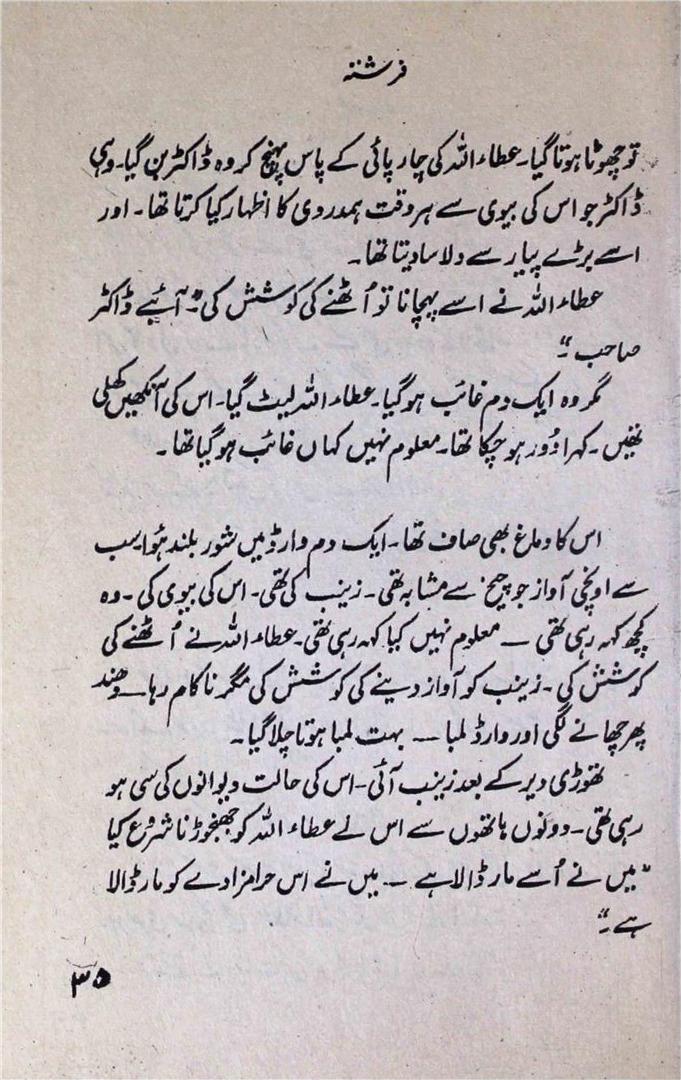 فرشتہ
تو چھوٹا ہوتا گیا۔ عطاء اللہ کی چارپائی کے پاس پہنچ کر وہ ڈاکٹر بن گیا۔ وہی
ڈاکٹر جو اس کی بیوی سے ہر وقت ہمدردی کا اظہار کیا کرتا تھا۔ اور
اسے بڑے پیار سے دلاسا دیتا تھا۔
عطاء اللہ نے اسے پہچانا تو اُٹھنے کی کوشش کی: "آئیے ڈاکٹر
صاحب۔"
مگر وہ ایک دم غائب ہو گیا۔ عطاء اللہ لیٹ گیا۔ اس کی آنکھیں کھلی
تھیں۔ کہرا دُور ہو چکا تھا۔ معلوم نہیں کہاں غائب ہو گیا تھا۔
اس کا دماغ بھی صاف تھا۔ ایک دم وارڈ میں شور بلند ہوُا۔ سب
سے اونچی آواز جو چیخ سے مشابہ تھی۔ زینب کی تھی۔ اس کی بیوی کی۔ وہ
کچھ کہہ رہی تھی — معلوم نہیں کیا کہہ رہی تھی۔ عطاء اللہ نے اُٹھنے کی
کوشش کی۔ زینب کو آواز دینے کی کوشش کی مگر ناکام رہا — دھند
پھر چھانے لگی اور وارڈ لمبا — بہت لمبا ہوتا چلا گیا۔
تھوڑی دیر کے بعد زینب آئی۔ اس کی حالت دیوانوں کی سی ہو
رہی تھی۔ دونوں ہاتھوں سے اس نے عطاء اللہ کو جھنجوڑنا شروع کیا
"میں نے اُسے مار ڈالا ہے — میں نے اس حرامزادے کو مار ڈالا
ہے۔"
۳۵